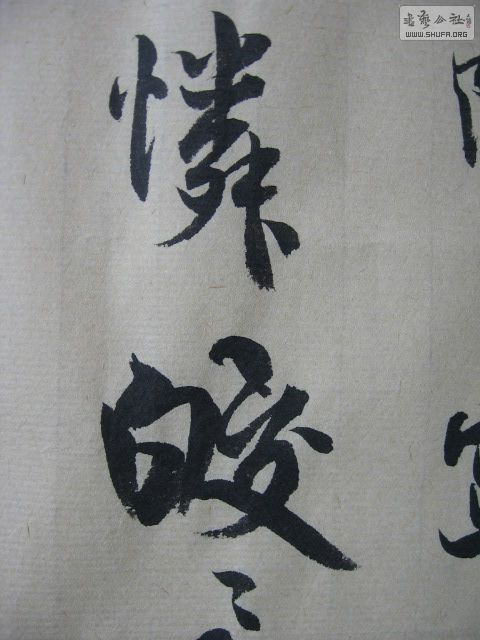 憐皎〻
書藝公社
WWW.SHUFA.ORG